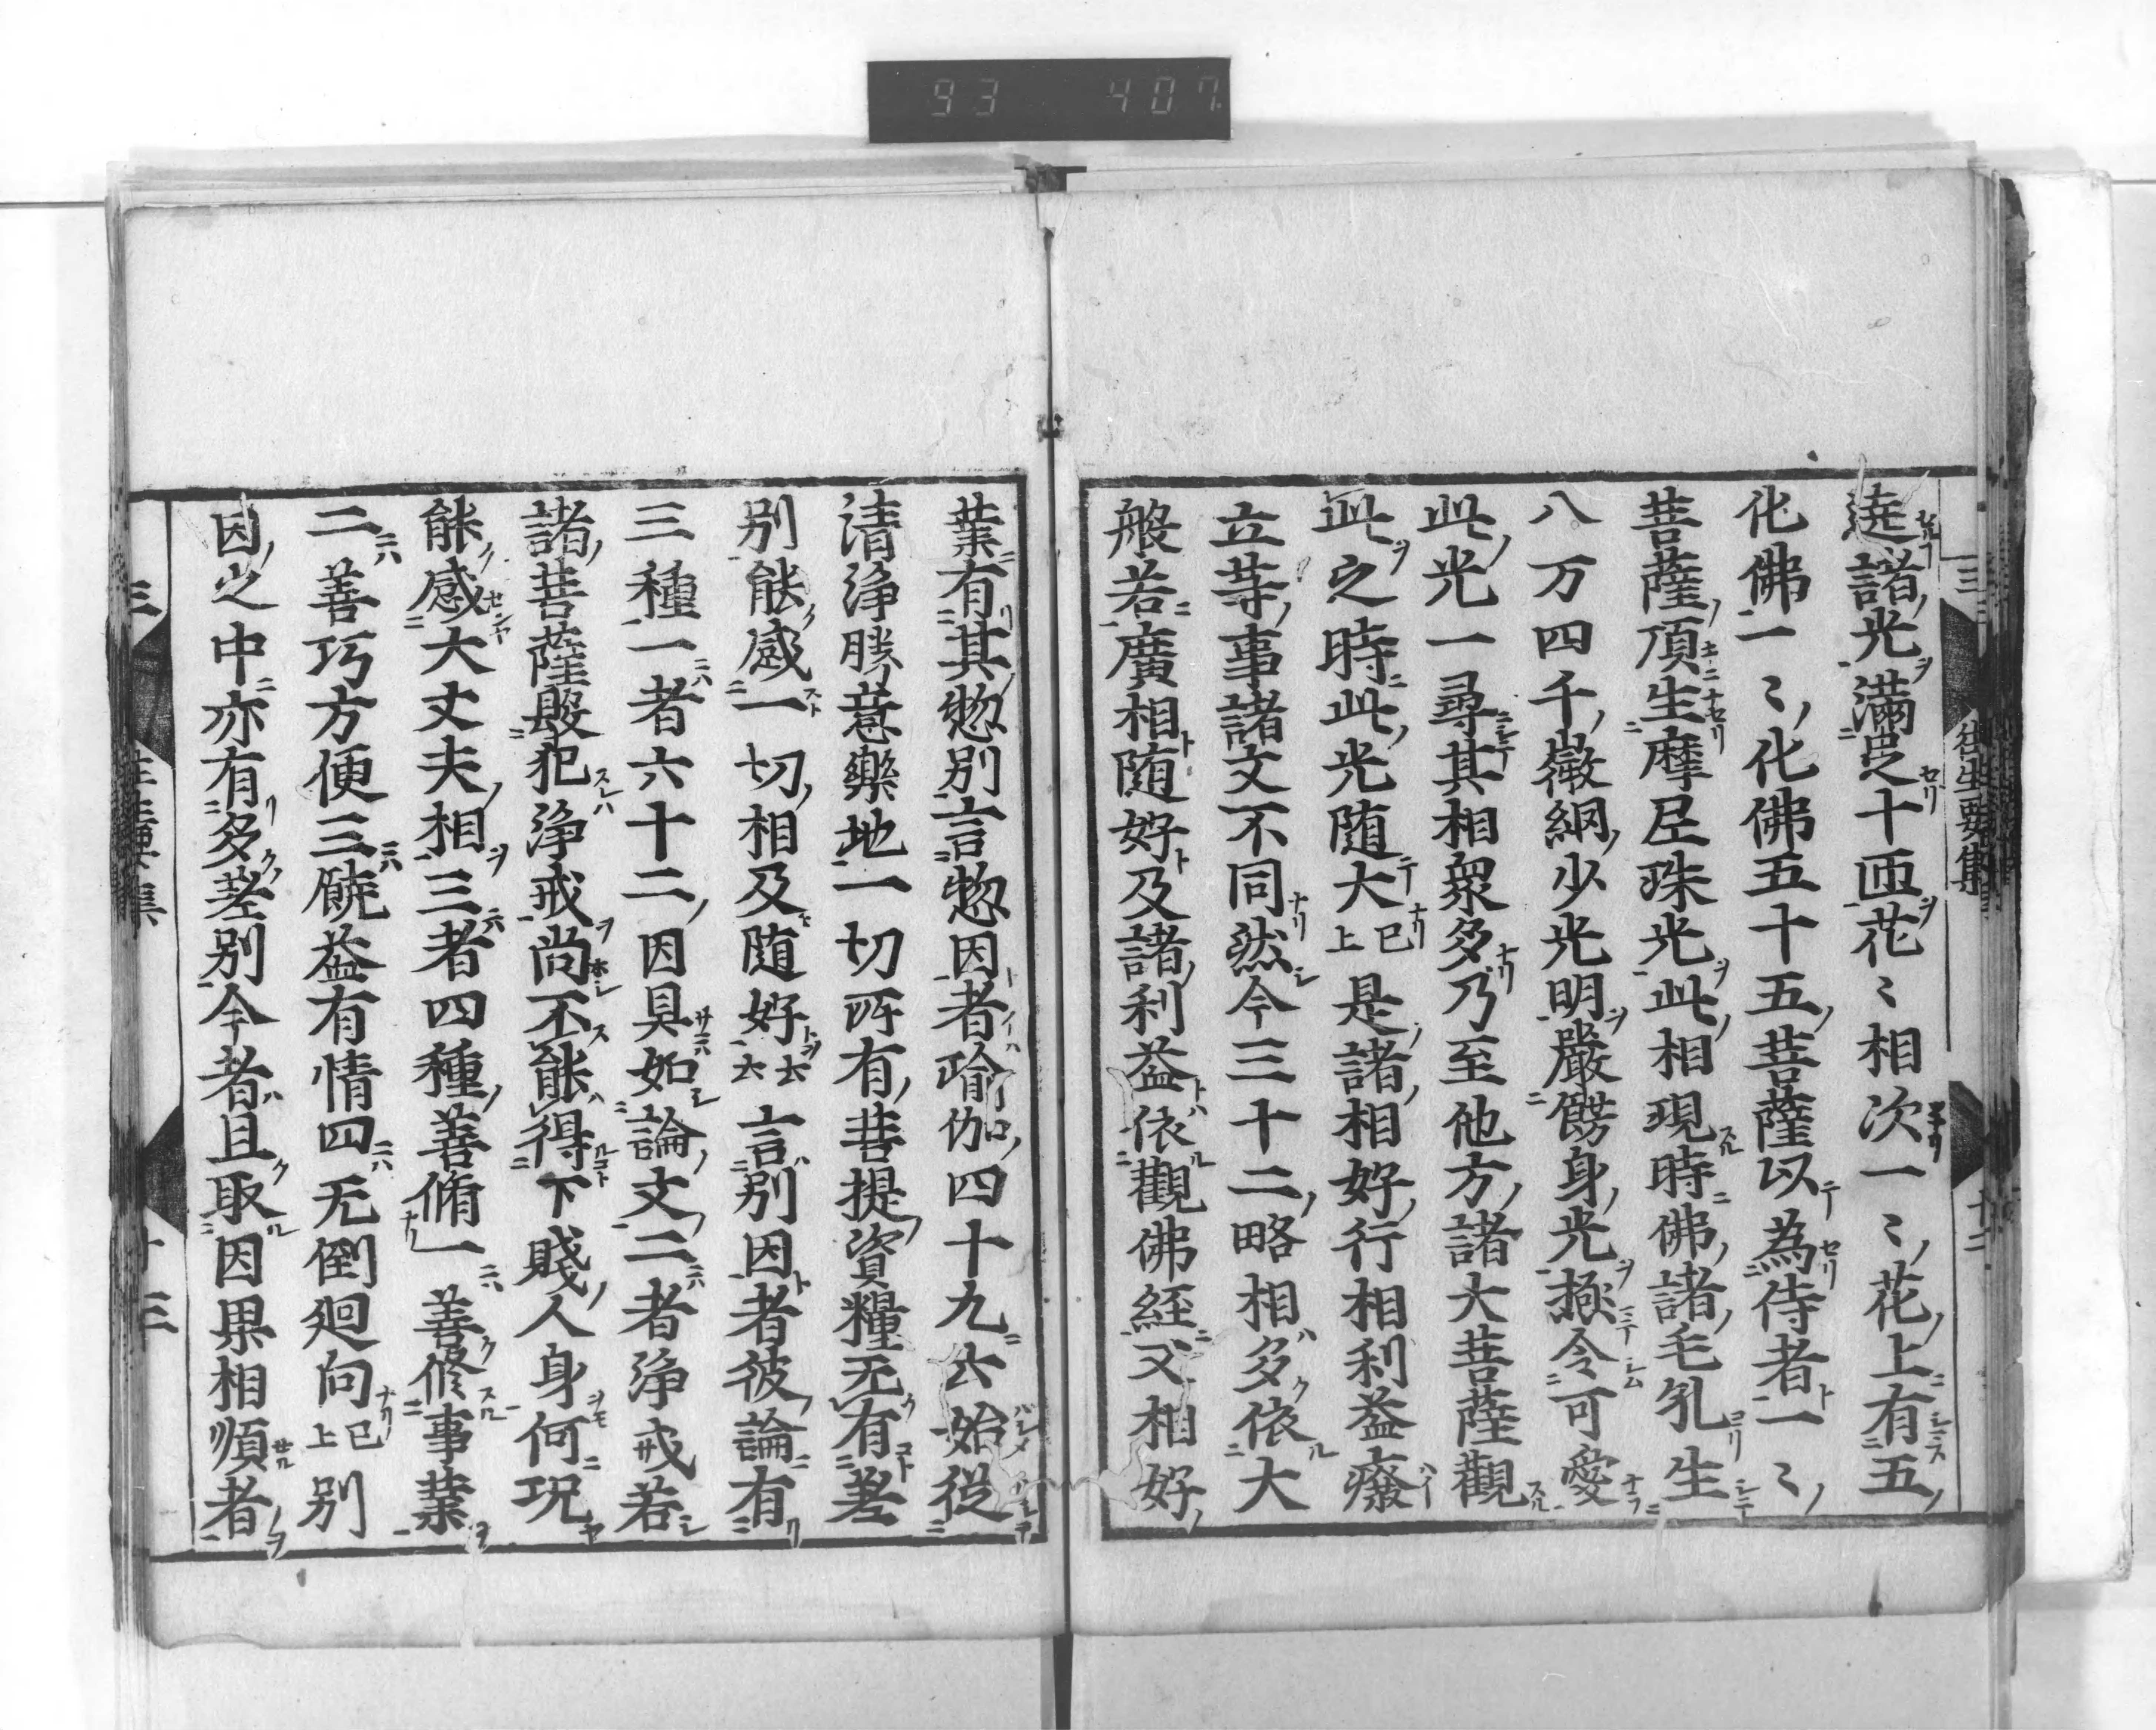 93 407
遶諸光滿足十迊花〻相次一〻花上有五
化佛一〻化佛五十五菩薩以為侍者一〻
菩薩頂生摩尼珠光此相現時佛諸毛孔生
八万四千微細少光明嚴餝身光極令可愛
此光一尋其相衆多乃至他方諸大菩薩觀
此之時此光随大已上是諸相好行相利益癈
立等事諸文不同然今三十二略相多依大
般若廣相随好及諸利益依觀佛經又相好
業有其惣別言惣因者瑜伽四十九云始從
清浄勝意樂地一切所有菩提資糧无有差
別能感一切相及随好云云言別因者彼論有
三種一者六十二因具如論文二者浄戒若
諸菩薩毀犯浄戒尚不能得下賤人身何况
能感大丈夫相三者四種善脩一善修事業
二善巧方便三饒益有情四无倒廻向已上別
因之中亦有多差別今者且取因果相順者
三 往生要集 十二
三 往生要集 十三